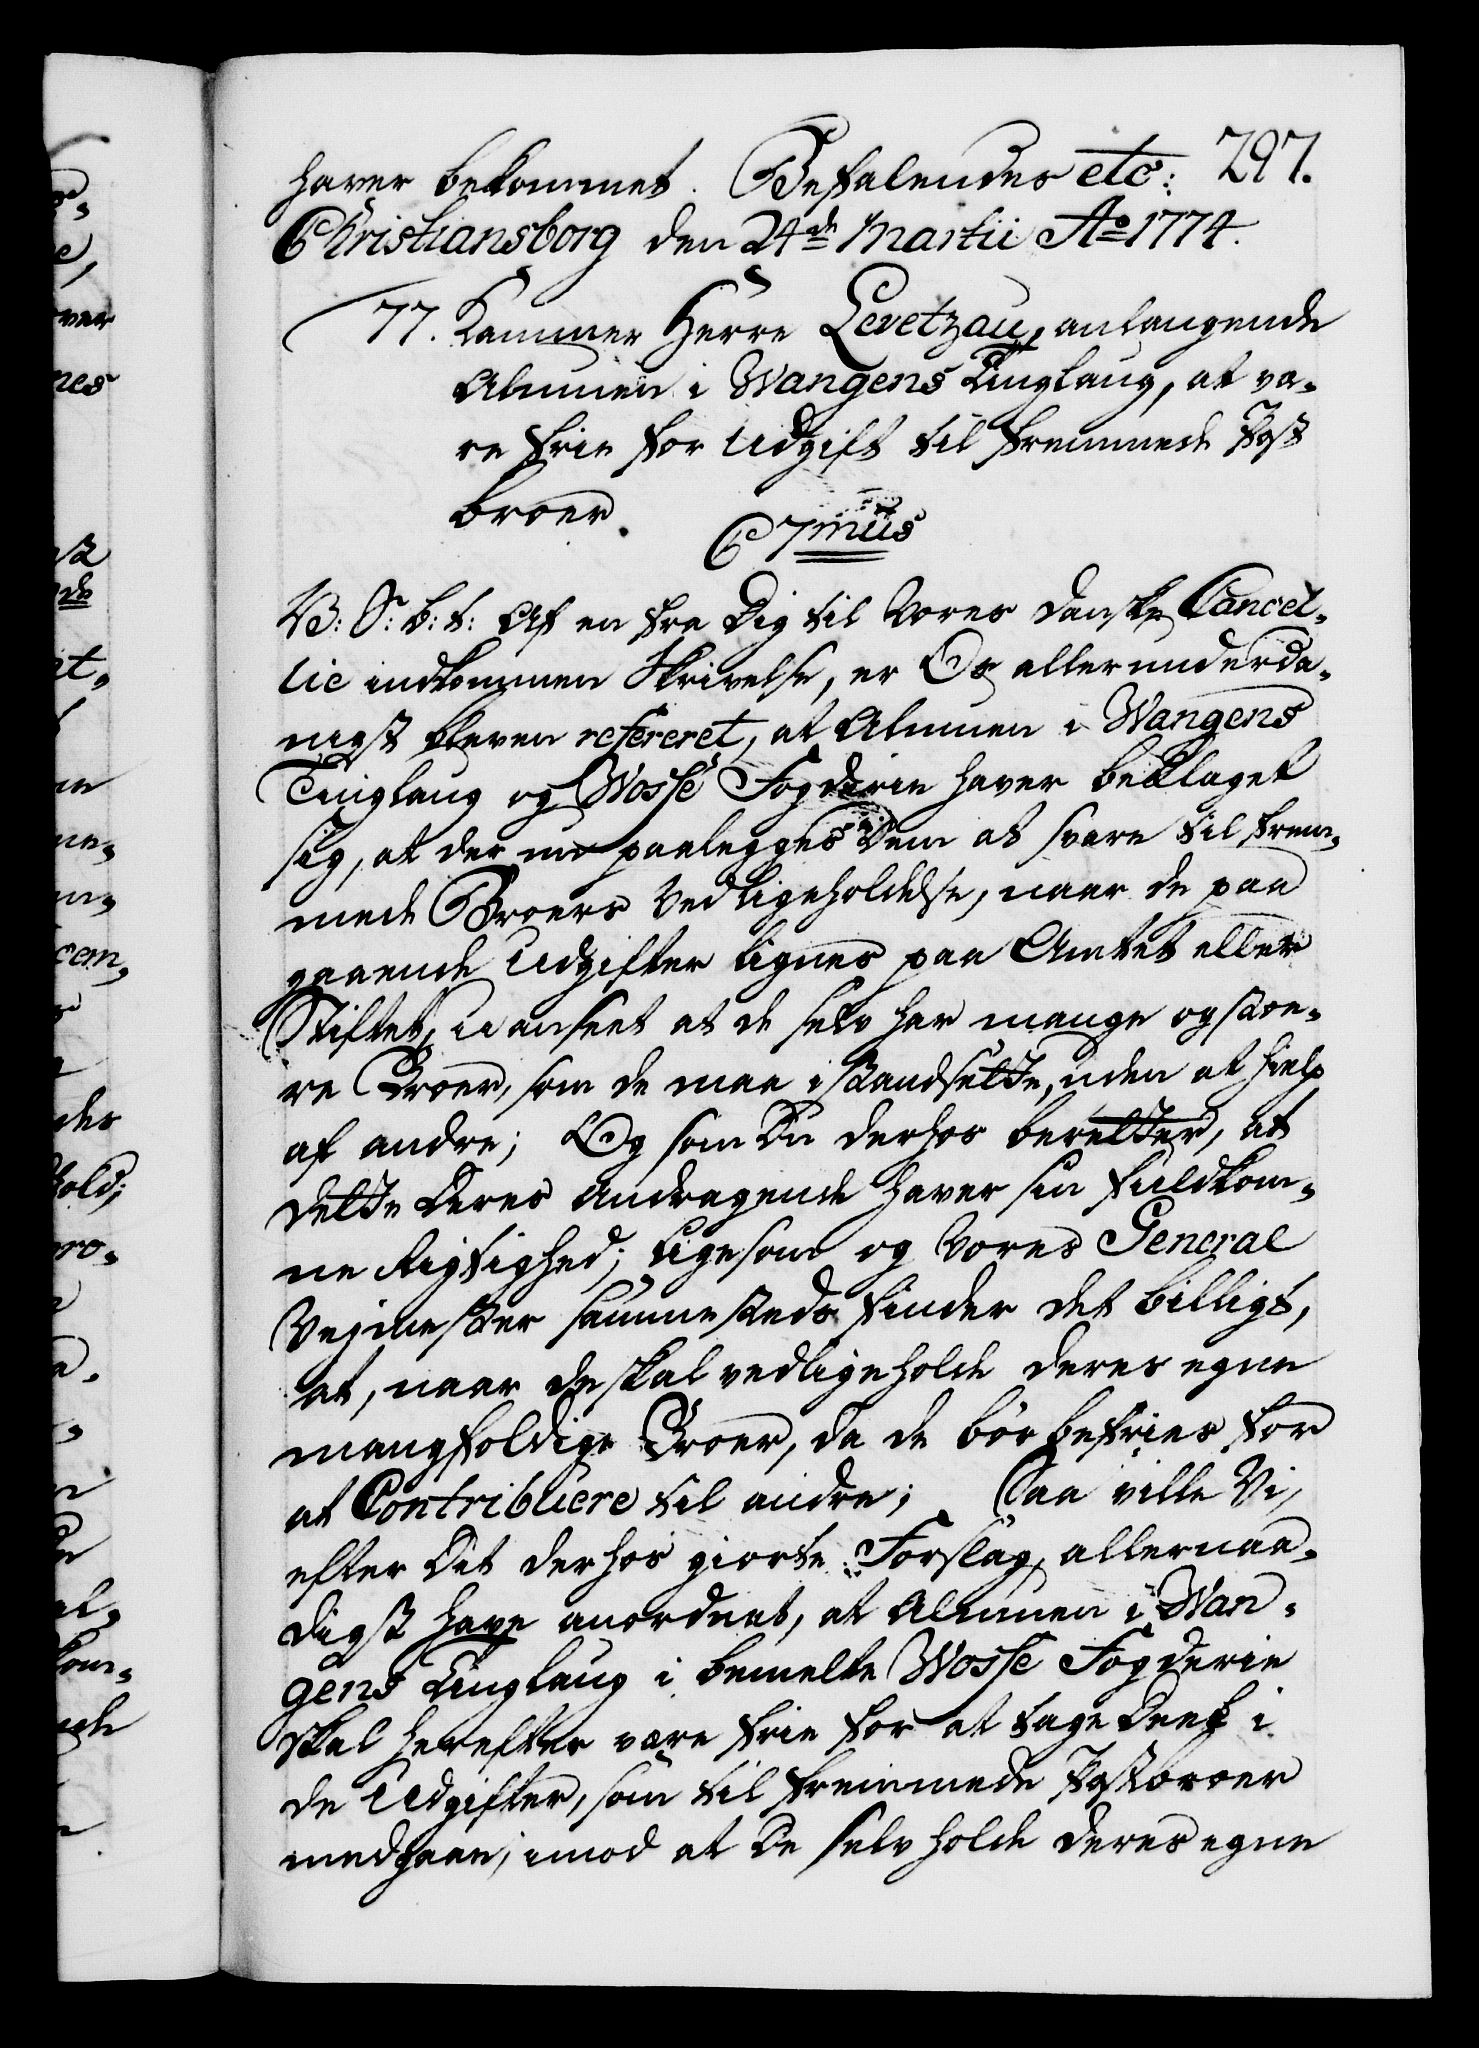 haver bekommet. Befalendes etc: 297.
Christiansborg den 24de Martii Ao 1774.
77. Kammer Herre Levetzau, anlangende
Almuen i Wangens Tinglaug, at væ-
re frie for Udgift til fremmede Post
broer.
C 7mus
V: S: b: t: Af en fra Dig til Vores danske Cancel-
lie indkommen Skrivelse, er Os allerunderda-
nigst bleven refereret, at Almuen i Wangens
Tinglaug og Wosse Fogderie haver beklaget
sig, at der paalegges Dem at svare til frem-
mede Broers Vedligeholdelse, naar de paa
gaaende Udgifter lignes paa Amtet eller
Stiftet, uanseet at de selv har mange og stoe-
re Broer, som de maa istandsette, uden at hielp
af andre; Og som Du derhos beretter, at
dette Deres Andragende haver sin fuldkom-
ne Rigtighed; ligesom og Vores General
Vejmester sammesteds finder det billigt,
at, naar de skal vedligeholde deres egne
mangfoldige Broer, da de bør befries for
at Contribuere til andre; Saa ville Vi,
efter Dit derhos giorte Forslag, allernaa-
digst have anordnet, at Almuen i Wan-
gens Tinglaug i bemelte Wosse Fogderie
skal herefter være frie for at tage Deel i
de Udgifter, som til fremmede Postbroer
medgaae, imod at De selv holde deres egne